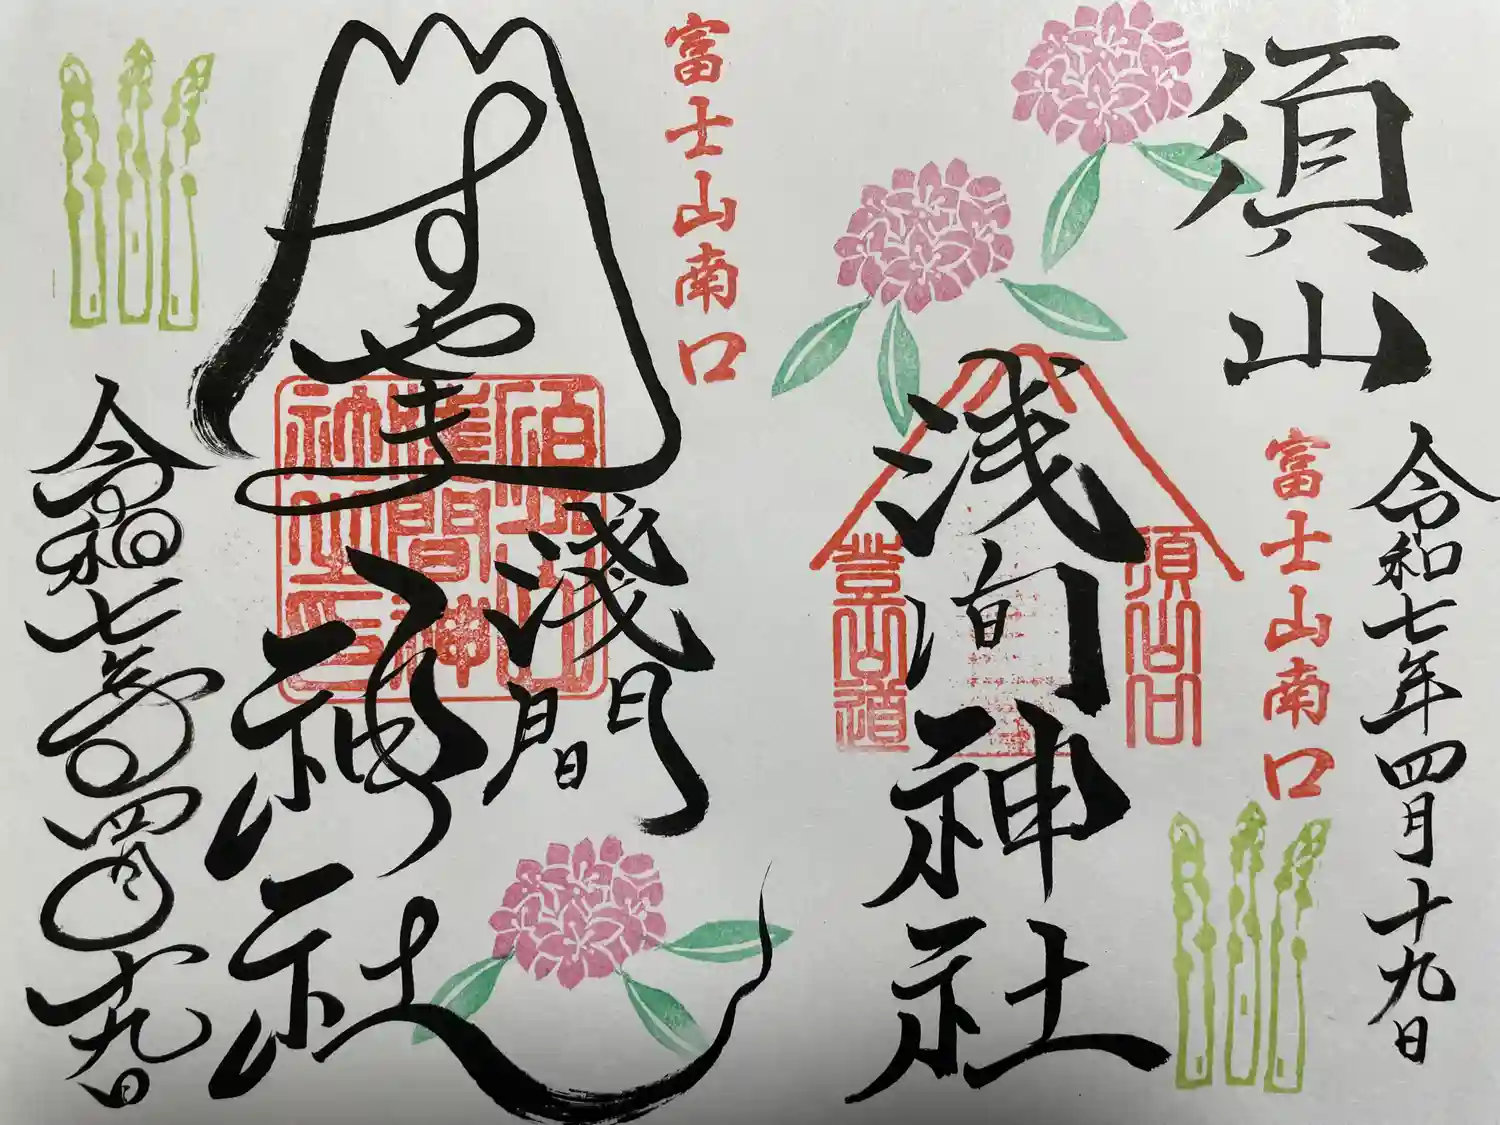 須山
浅間神社
富士山南口
須山口
登山道
令和七年四月十九日
富士山南口
すやま
淺間
神社
須山淺間神社之印
令和七年四月十九日